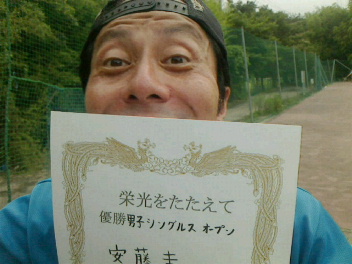 栄光をたたえて
優勝男子シングルス オープン
安藤